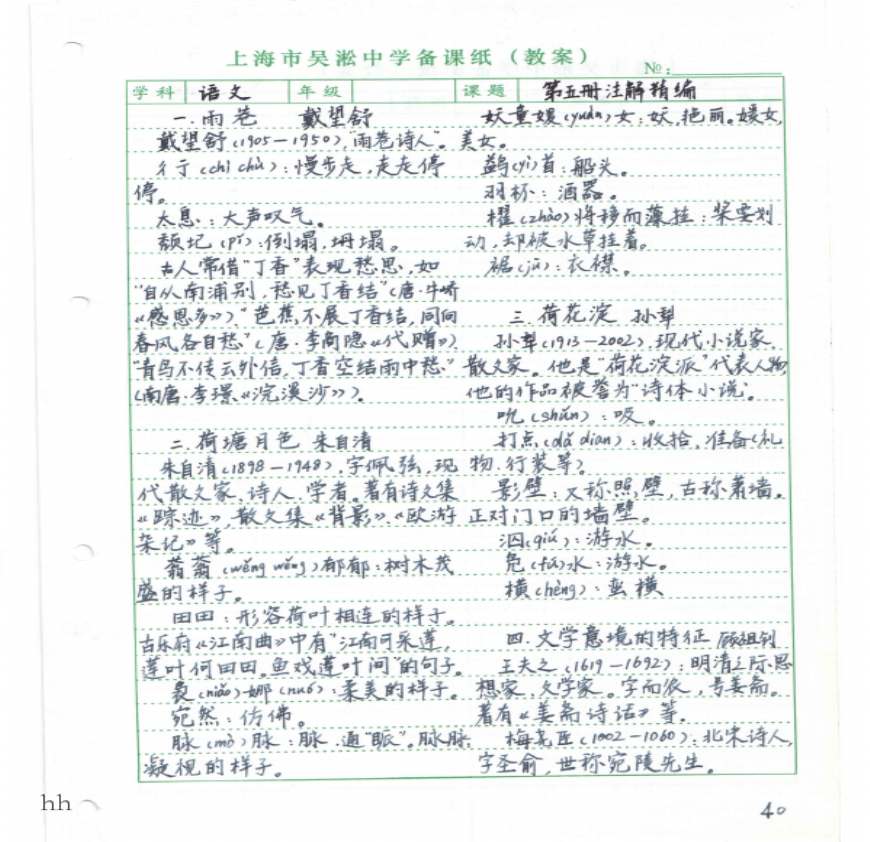 上海市吴淞中学备课纸（教案）
№:
学科 语文 年级 课题 第五册注解精编
一.雨巷 戴望舒
戴望舒(1905—1950),"雨巷诗人"。
彳亍(chì chù):慢步走,走走停
停。
太息:大声叹气。
颓圮(pǐ):倒塌,坍塌。
古人常借"丁香"表现愁思,如
"自从南浦别,愁见丁香结"(唐·牛峤
《感恩多》)"芭蕉不展丁香结,同向
春风各自愁"(唐·李商隐《代赠》)
"青鸟不传云外信,丁香空结雨中愁"
(南唐·李璟《浣溪沙》)。
二.荷塘月色 朱自清
朱自清(1898—1948),字佩弦,现
代散文家、诗人、学者。著有诗文集
《踪迹》,散文集《背影》、《欧游
杂记》等。
蓊蓊(wěng wěng)郁郁:树木茂
盛的样子。
田田:形容荷叶相连的样子。
古乐府《江南曲》中有"江南可采莲,
莲叶何田田。鱼戏莲叶间"的句子。
袅(niǎo)娜(nuó):柔美的样子。
宛然:仿佛。
脉(mò)脉:脉.通"眽"。脉脉:
凝视的样子。
妖童媛(yuàn)女:妖,艳丽。媛女,
美女。
鹢(yì)首:船头。
羽杯:酒器。
櫂(zhào)将移而藻挂:桨要划
动,却被水草挂着。
裾(jū):衣襟。
三.荷花淀 孙犁
孙犁(1913—2002),现代小说家,
散文家。他是"荷花淀派"代表人物
他的作品被誉为"诗体小说"。
吮(shǔn):吸。
打点(dǎ dian):收拾,准备(礼
物.行装等)。
影壁:又称照壁,古称萧墙。
正对门口的墙壁。
泅(qiú):游水。
凫(fú)水:游水。
横(hèng):蛮横
四.文学意境的特征 顾祖钊
王夫之(1619—1692):明清之际思
想家、文学家。字而农,号姜斋。
著有《姜斋诗话》等.
梅尧臣(1002—1060):北宋诗人,
字圣俞,世称宛陵先生。
hh
40